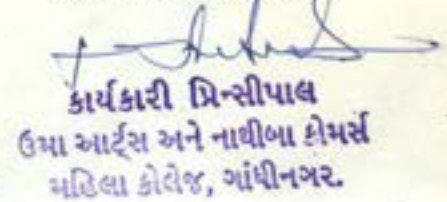 કાર્યકારી પ્રિન્સીપાલ
ઉમા આર્ટ્સ અને નાથીબા કોમર્સ
મહિલા કોલેજ, ગાંધીનગર.